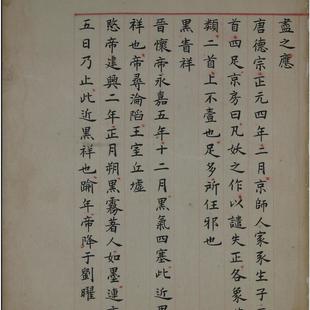 蠱之應
唐德宗正元四年二月京師人家豕生子
首四足京房曰凡妖之作以譴失正各象
類二首上不壹也足多所任邪也
黑眚祥
晉懷帝永嘉五年十二月黑氣四塞此近黑
祥也帝尋淪陷王室丘墟
愍帝建興二年正月朔黑霧著人如墨連
五日乃止此近黑祥也踰年帝降于劉曜